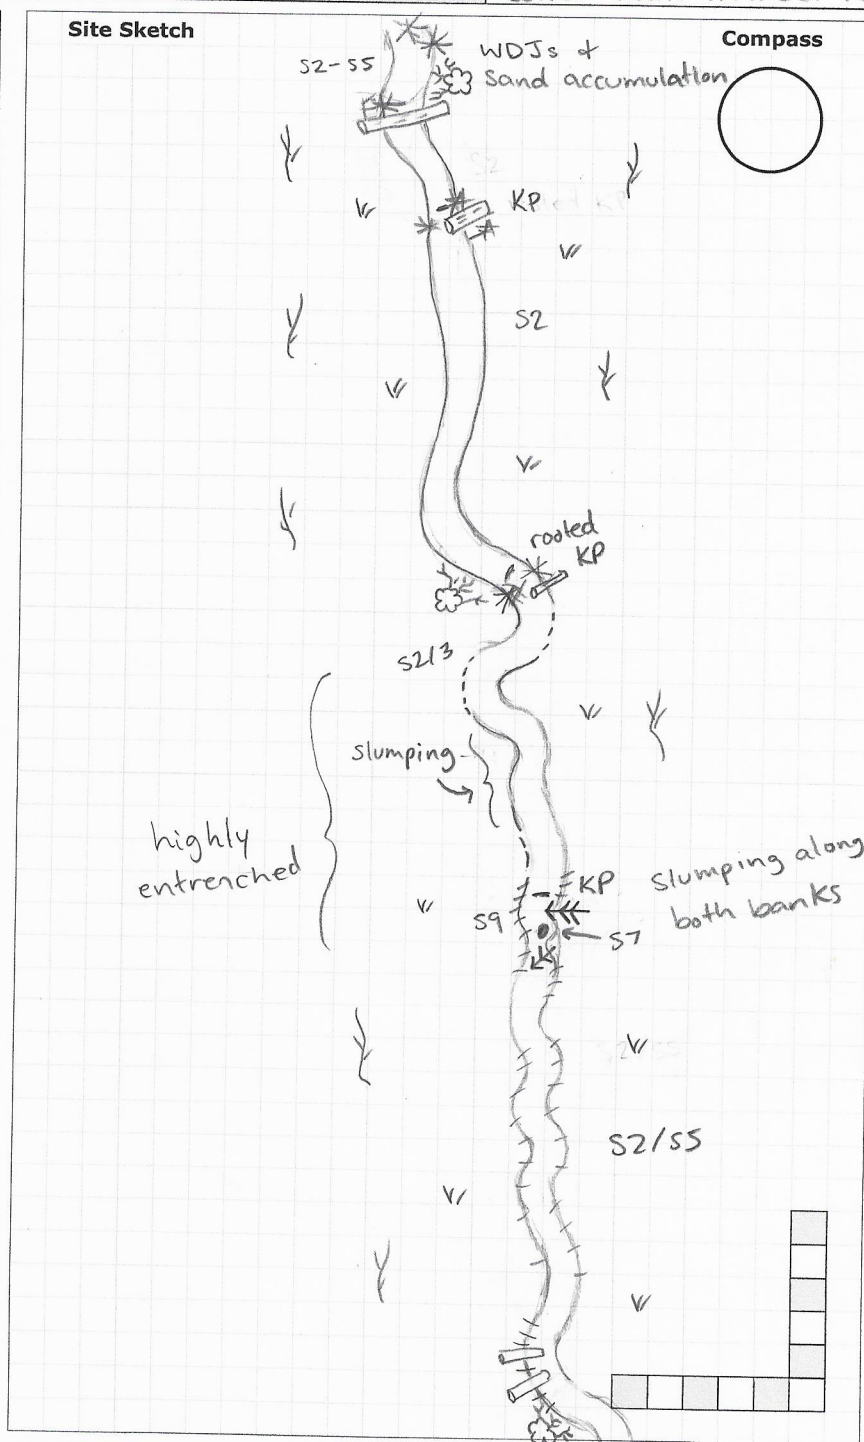 Site Sketch
Compass
S2-S5
WDJs +
Sand accumulation
S2
KP
S2
rooted
KP
S2/3
slumping
highly
entrenched
KP
Slumping along
both banks
S9
S7
S2/S5